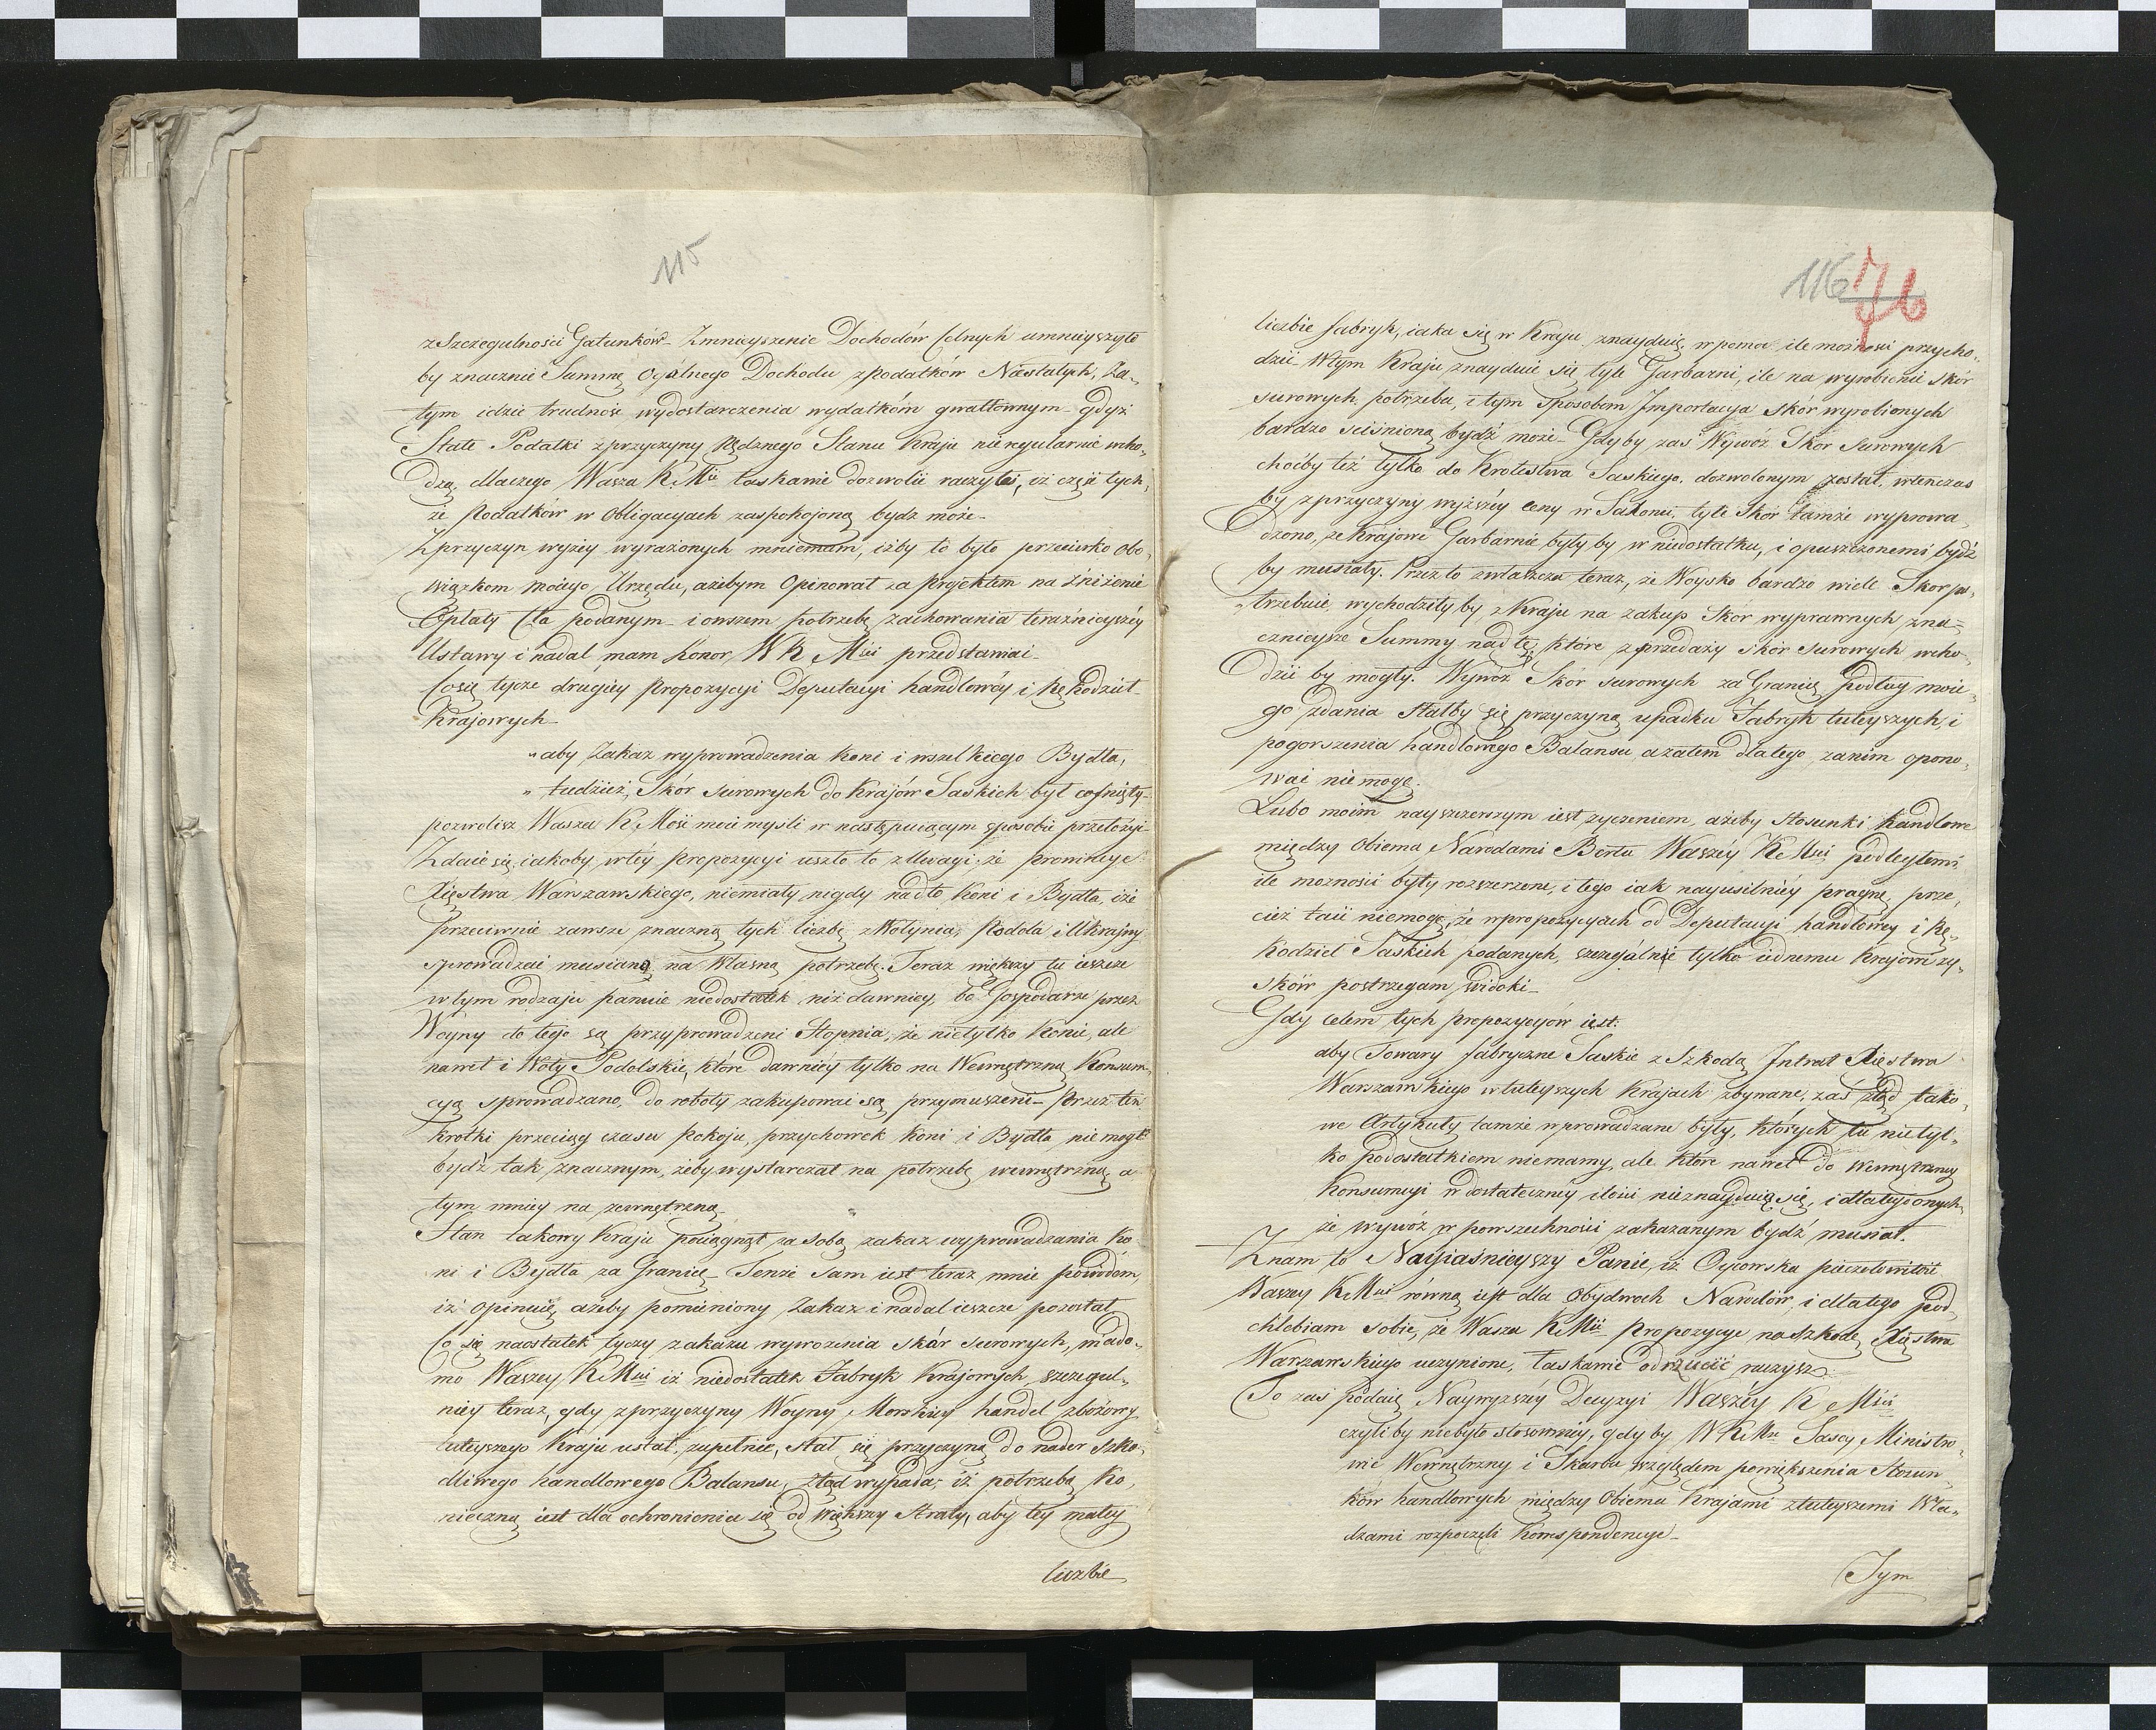 115
z Szczegulności Gatunków – Zmnieyszenie Dochodów Celnych umnieyszyło
by znacznie Summę Ogólnego Dochodu z podatków Niestałych, Za-
tym idzie trudność wydostarczenia wydatkóm gwałtownym – gdyż
Stałe Podatki z przyczyny Nędznego Stanu Kraju nieregularnie wcho-
dzą, dlaczego Wasza K. Mść łaskawie dozwolić raczyłeś, iż część tych-
że Podatków w Obligacyach zaspokojoną bydz może –
Z przyczyn wyżey wyrażonych mniemam, iżby to było przeciwko Obo-
wiązkom moiego Urzędu, ażebym Opinował za projektem na zniżenie
Opłaty Cła podanym – i owszem potrzebę zachowania teraźnieyszéy
Ustawy i nadal mam honor W K Mści przedstawiać –
Co się tycze drugiéy Propozycyi Deputacyi handlowéy i Rękodzieł
Krajowych –
„aby Zakaz wyprowadzenia Koni i wszelkiego Bydła,
„tudzież, Skór surowych do Krajów Saskich był cofnięty –
pozwolisz Wasza K. Mość moie myśli w następuiącym sposobie przełożyć –
Zdaie się iakoby w téy Propozycyi uszło to z Uwagi, że prowincye
Xięstwa Warszawskiego, niemiały nigdy nadto Koni i Bydła, iże
przeciwnie zawsze znaczną tych liczbę z Wołynia, Podola i Ukrainy
sprowadzać musiano na Własną potrzebę. Teraz większy tu ieszcze
w tym rodzaju panuie niedostatek niż dawniey, bo Gospodarze przez
Woyny do tego są przyprowadzeni Stopnia, że nietylko Konie, ale
nawet i Woły Podolskie, które dawniéy tylko na Wewnętrzną Konsum-
cyą sprowadzano, do roboty zakupować są przymuszeni – Przez ten
krótki przeciąg czasu Pokoju, przychowek Koni i Bydła nie mógł
bydź tak znacznym, żeby wystarczał na potrzebę wewnętrzną a
tym mniéy na zewnętrzną
Stan takowy Kraju pociągnął za sobą zakaz wyprowadzania Ko
ni i Bydła za Granicę – Tenże sam iest teraz mnie powodem,
iż opinuię ażeby pomieniony Zakaz i nadal ieszcze pozostał
Co się naostatek tyczy zakazu wywozenia skór surowych, wiado-
mo Waszey K Mści iż niedostatek Fabryk Krajowych, szczegul-
niéy teraz, gdy z przyczyny Woyny Morskiéy handel zbożowy
tuteyszego Kraju ustał zupełnie, stał się przyczyną do nader szko-
dliwego handlowego Balansu, ztąd wypada, iż potrzebą Ko-
nieczną iest dla ochronienia się od większéy Straty, aby téy małéy
liczbie
116 76
liczbie fabryk, iaka się w Kraju znayduie, w pomoc ile możności przycho-
dzić – W tym Kraju znayduie się tyle Garbarni, ile na wyrobienie skór
surowych potrzeba, i tym sposobem Importacya skór wyrobionych
bardzo ścisnioną bydź może – Gdyby zaś Wywóz Skór surowych
choćby też tylko do Królestwa Saskiego, dozwolonym został, wtenczas
by z przyczyny wyższéy ceny w Saxonii, tyle Skór tamże wyprowa
dzono, że Krajowe Garbarnie byłyby w niedostatku, i opuszczonemi bydź
by musiały. Przez to zwłaszcza teraz, że Woysko bardzo wiele Skór po-
trzebuie, wychodziłyby z Kraju na zakup Skór wyprawnych zna-
cznieysze Summy nad tę, które z przedaży skór surowych wcho-
dzić by mogły. Wywóz Skór surowych za Granicę podług moie-
go zdania stałby się przyczyną upadku Fabryk tuteyszych, i
pogorszenia handlowego Balansu, a zatem dlatego zanim opono-
wać nie mogę.
Lubo moim nayszczerszym iest życzeniem, ażeby stosunki handlowe
między Obiema Narodami Berłu Waszéy K Mści podległemi,
ile możności były rozszerzone, i tego iak nayusilniéy pragnę, prze-
cież taić niemogę, że w propozycyach od Deputacyi handlowéy i Rę-
kodzieł Saskich podanych, szczególnie tylko iednemu Krajowi zy-
sków postrzegam widoki –
Gdy celem tych propozycyów iest:
aby Towary fabryczne Saskie z Szkodą Intrat Xięstwa
Warszawskiego w tuteyszych Krajach zbywane, zaś ztąd tako-
we Artykuły tamże wprowadzane były, których tu nietyl-
ko podostatkiem niemamy, ale które nawet do wewnętrznéy
Konsumcyi w dostatecznéy ilości nieznayduią się, i dlategoż onych-
że wywóz w powszechności zakazanym bydź musiał.
Znam to Nayiaśnieyszy Panie, iż Oycowska pieczołowitość
Waszey K Mści równa iest dla Obydwóch Narodów, i dlatego pod-
chlebiam sobie, że Wasza K Mść Propozycye na szkodę Xięstwa
Warszawskiego uczynione, łaskawie odrzucić raczysz.
To zaś podaię Naywyższéy Decyzyi Waszéy K Mści
czyliby niebyło stosowniéy, gdyby W K Mci Sascy Ministro-
wie Wewnętrzny i Skarbu względem powiększenia Stosun-
ków handlowych między Obiema Krajami z tuteyszemi Wła-
dzami rozpoczęli Korrespondencye –
Tym